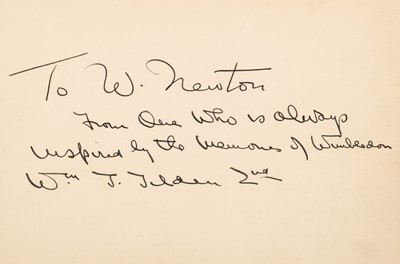 To W. Newton
From One Who is always
inspired by the Memories of Wimbledon
Wm T. Tilden 2nd